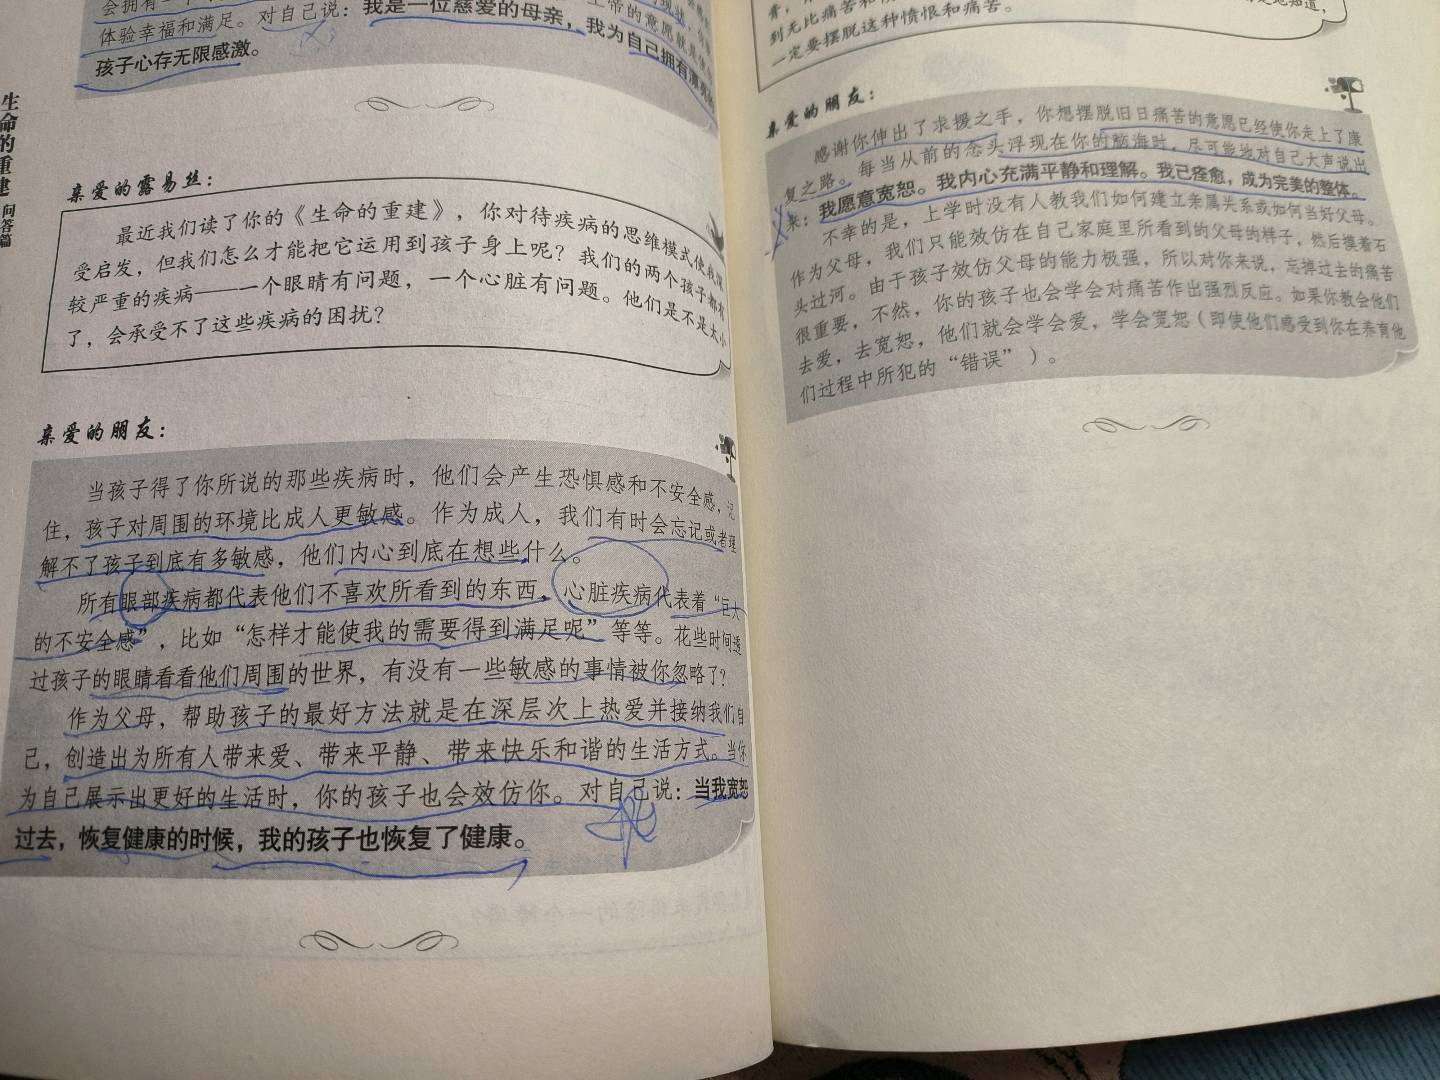 体验幸福和满足。对自己说：我是一位慈爱的母亲，我为自己拥有
孩子心存无限感激。
生命的重建 问答篇
亲爱的露易丝：
最近我们读了你的《生命的重建》，你对待疾病的思维模式使我
受启发，但我们怎么才能把它运用到孩子身上呢？我们的两个孩子都有
较严重的疾病——一个眼睛有问题，一个心脏有问题。他们是不是太小
了，会承受不了这些疾病的困扰？
亲爱的朋友：
当孩子得了你所说的那些疾病时，他们会产生恐惧感和不安全感，记
住，孩子对周围的环境比成人更敏感。作为成人，我们有时会忘记或者理
解不了孩子到底有多敏感，他们内心到底在想些什么。
所有眼部疾病都代表他们不喜欢所看到的东西，心脏疾病代表着“巨大
的不安全感”，比如“怎样才能使我的需要得到满足呢”等等。花些时间透
过孩子的眼睛看看他们周围的世界，有没有一些敏感的事情被你忽略了？
作为父母，帮助孩子的最好方法就是在深层次上热爱并接纳我们自
己，创造出为所有人带来爱、带来平静、带来快乐和谐的生活方式。当你
为自己展示出更好的生活时，你的孩子也会效仿你。对自己说：当我宽恕
过去，恢复健康的时候，我的孩子也恢复了健康。
到无比痛苦和
一定要摆脱这种愤恨和痛苦。
亲爱的朋友：
感谢你伸出了求援之手，你想摆脱旧日痛苦的意愿已经使你走上了康
复之路。每当从前的念头浮现在你的脑海时，尽可能地对自己大声说出
来：我愿意宽恕。我内心充满平静和理解。我已痊愈，成为完美的整体。
不幸的是，上学时没有人教我们如何建立亲属关系或如何当好父母。
作为父母，我们只能效仿在自己家庭里所看到的父母的样子，然后摸着石
头过河。由于孩子效仿父母的能力极强，所以对你来说，忘掉过去的痛苦
很重要，不然，你的孩子也会学会对痛苦作出强烈反应。如果你教会他们
去爱，去宽恕，他们就会学会爱，学会宽恕（即使他们感受到你在养育他
们过程中所犯的“错误”）。